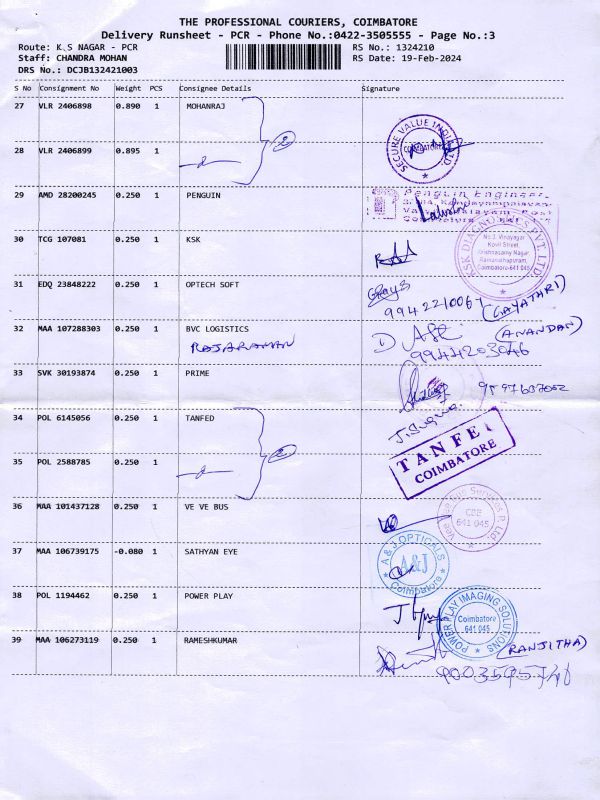 THE PROFESSIONAL COURIERS, COIMBATORE
Delivery Runsheet - PCR - Phone No.:0422-3505555 - Page No.:3
Route: K.S NAGAR - PCR
RS No.: 1324210
Staff: CHANDRA MOHAN
RS Date: 19-Feb-2024
DRS No.: DCJB132421003
S No Consignment No Weight PCS Consignee Details Signature
27 VLR 2406898 0.890 1 MOHANRAJ
2
28 VLR 2406899 0.895 1
SECURE VALUE INDIA LTD.
COIMBATORE
29 AMD 28200245 0.250 1 PENGUIN
Penguin Engineer
30 TCG 107081 0.250 1 KSK
KSK DIAGNOSTICS PVT. LTD
No.3, Vinayagar
Kovil Street,
Krishnasamy Nagar,
Ramanathapuram,
Coimbatore-641 045
31 EDQ 23848222 0.250 1 OPTECH SOFT
9942210067 (GAYATARI)
32 MAA 107288303 0.250 1 BVC LOGISTICS
RAJARAMAN
(ANANDAN)
9944203046
33 SVK 30193874 0.250 1 PRIME
34 POL 6145056 0.250 1 TANFED
2
TANFE
COIMBATORE
35 POL 2588785 0.250 1
36 MAA 101437128 0.250 1 VE VE BUS
Vee Vee Bus Services P. Ltd.
CBE
641 045
37 MAA 106739175 -0.080 1 SATHYAN EYE
A&J OPTICALS
A&J
Coimbatore
38 POL 1194462 0.250 1 POWER PLAY
POWER PLAY IMAGING SOLUTIONS
Coimbatore
641 045
39 MAA 106273119 0.250 1 RAMESHKUMAR
(RANJITHA)